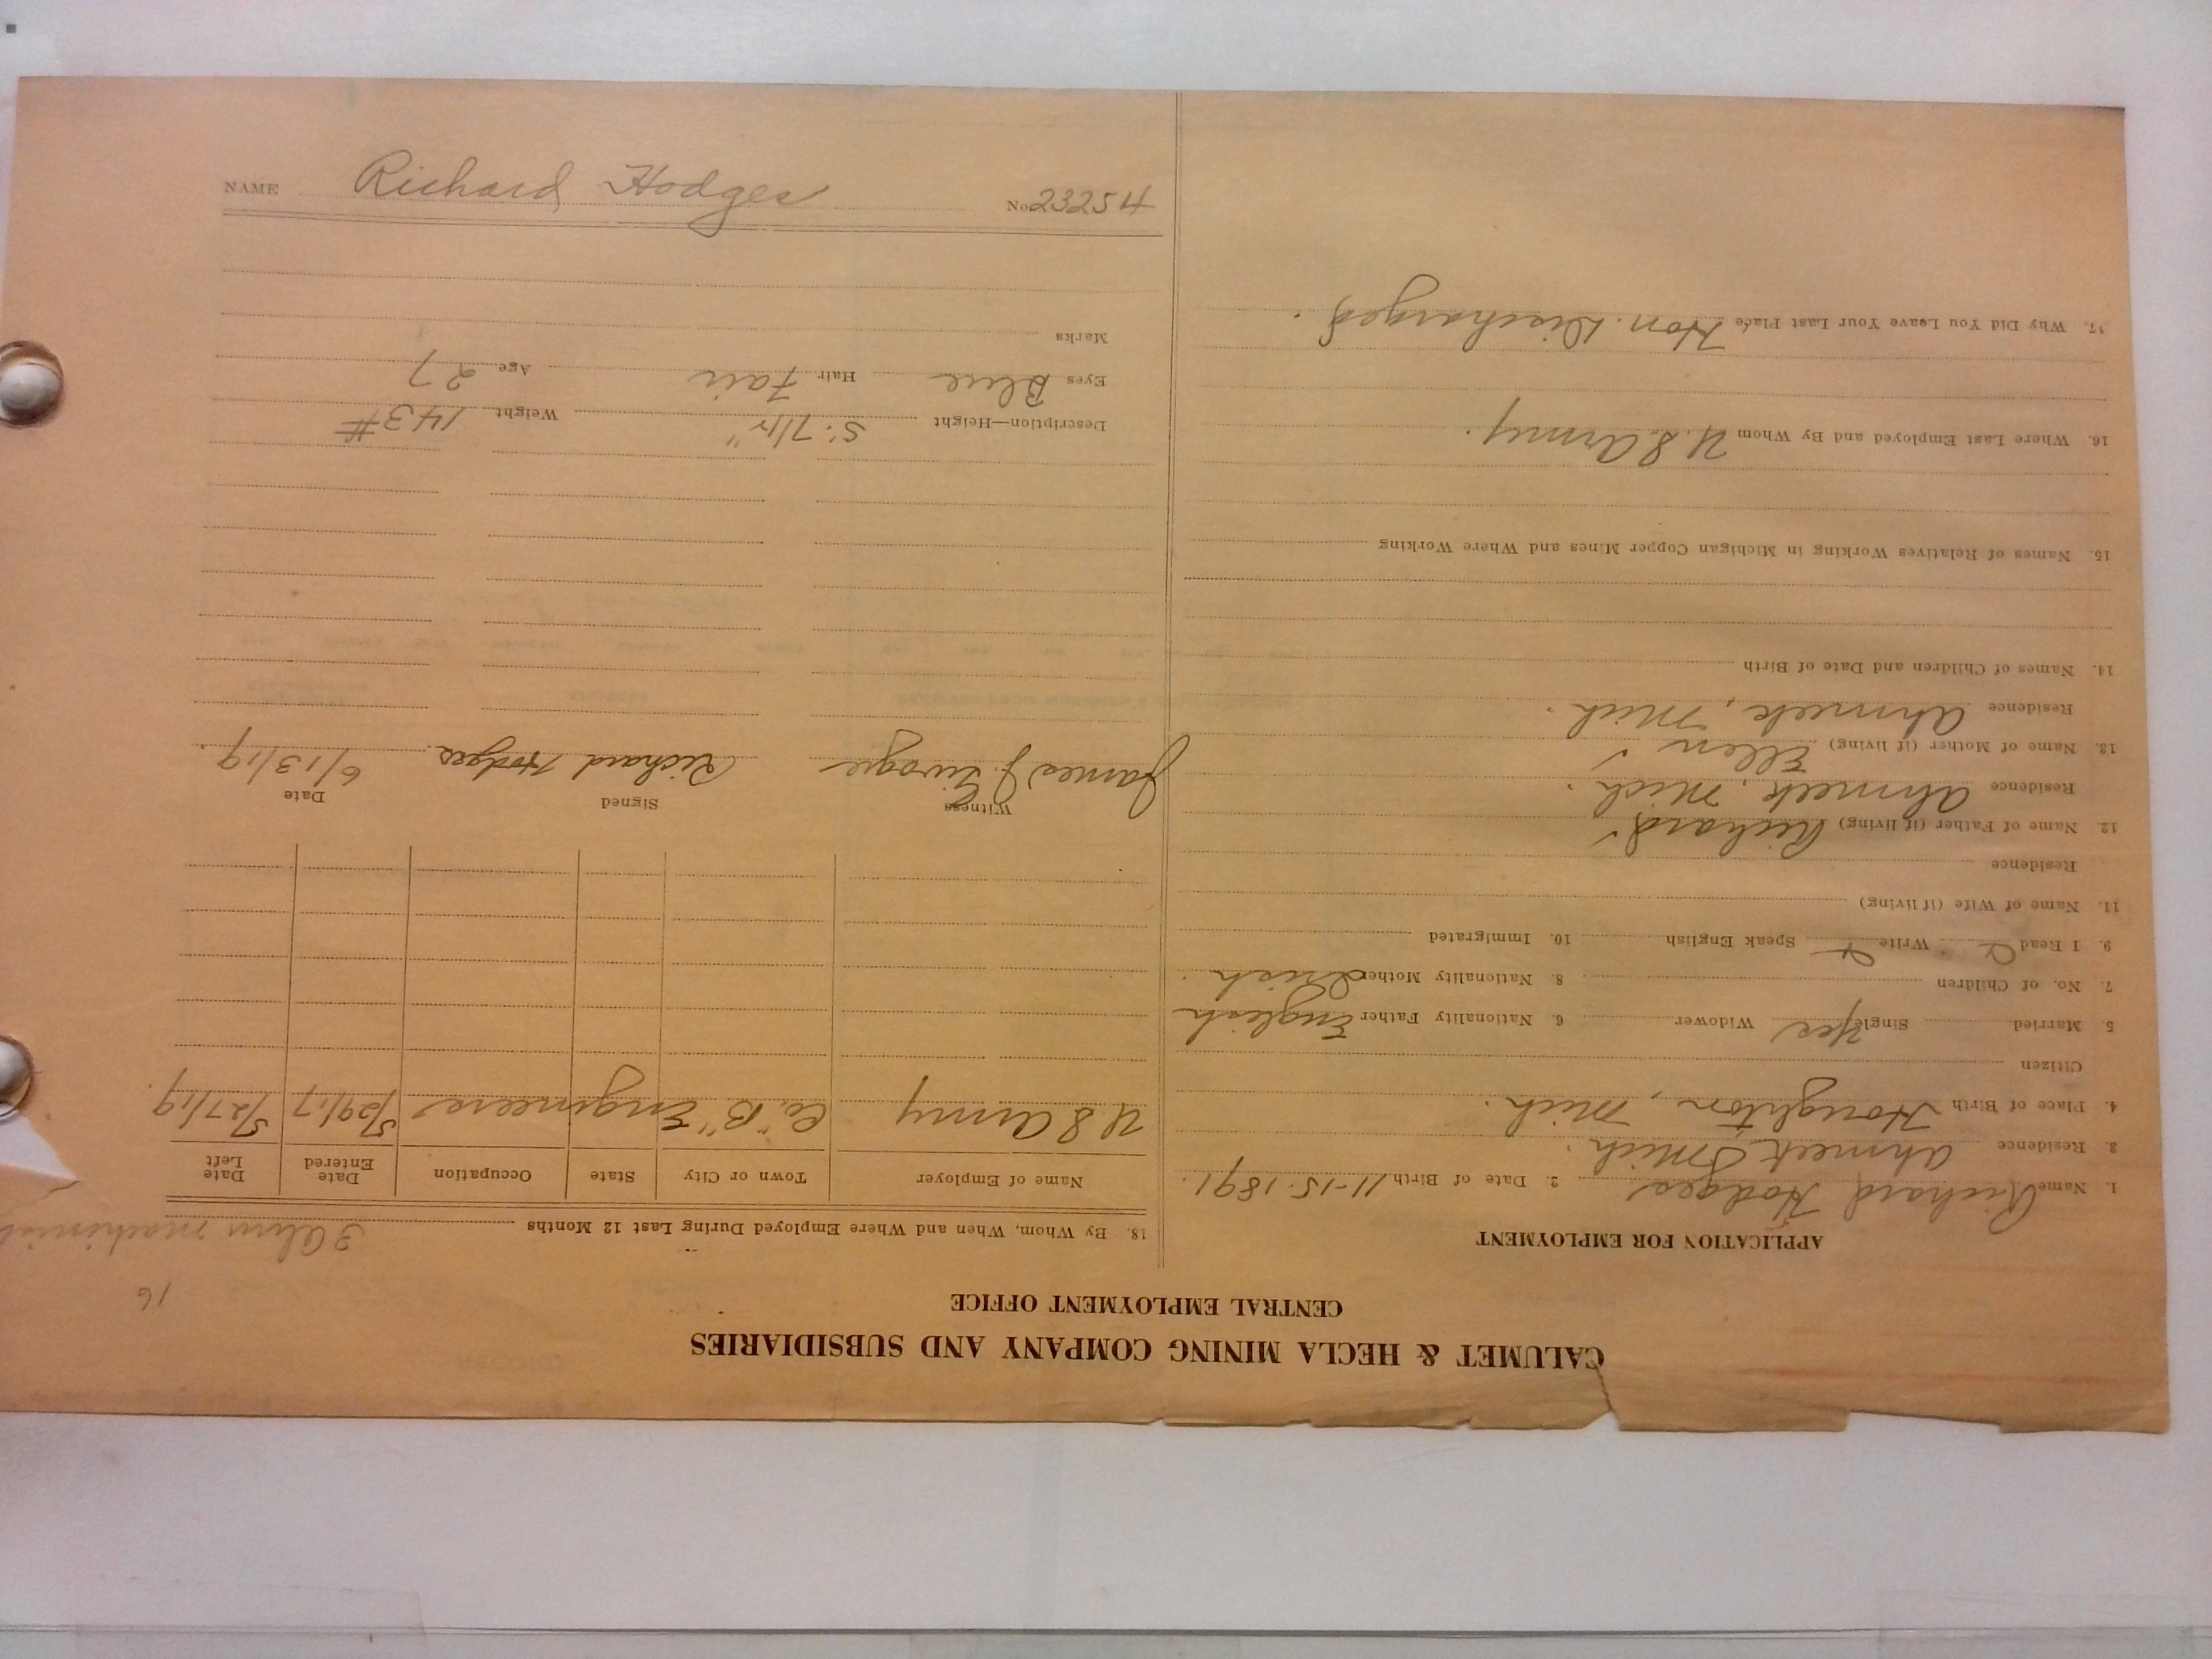 CALUMET & HECLA MINING COMPANY AND SUBSIDIARIES
CENTRAL EMPLOYMENT OFFICE
16
APPLICATION FOR EMPLOYMENT
1. Name Richard Hodges 2. Date of Birth 11-15-1891.
3. Residence Ahmeek Mich.
4. Place of Birth Houghton, Mich.
Citizen
5. Married Single Yes Widower 6. Nationality Father English
7. No. of Children 8. Nationality Mother Irish.
9. I Read Write Speak English 10. Immigrated
11. Name of Wife (if living)
Residence
12. Name of Father (if living) Richard
Residence Ahmeek, Mich.
13. Name of Mother (if living) Ellen
Residence Ahmeek, Mich.
14. Names of Children and Date of Birth
15. Names of Relatives Working in Michigan Copper Mines and Where Working
16. Where Last Employed and By Whom U.S. Army.
17. Why Did You Leave Your Last Place Hon. Discharged.
18. By Whom, When and Where Employed During Last 12 Months
Name of Employer Town or City State Occupation Date Entered Date Left
U S Army Co. "B" Engineers 5/29/17 5/27/19.
Witness Signed Date
James J. Richard Hodges. 6/13/19.
Description—Height 5' 7 1/2" Weight 143 #
Eyes Blue Hair Fair Age 27
Marks
NAME Richard Hodges No. 23254